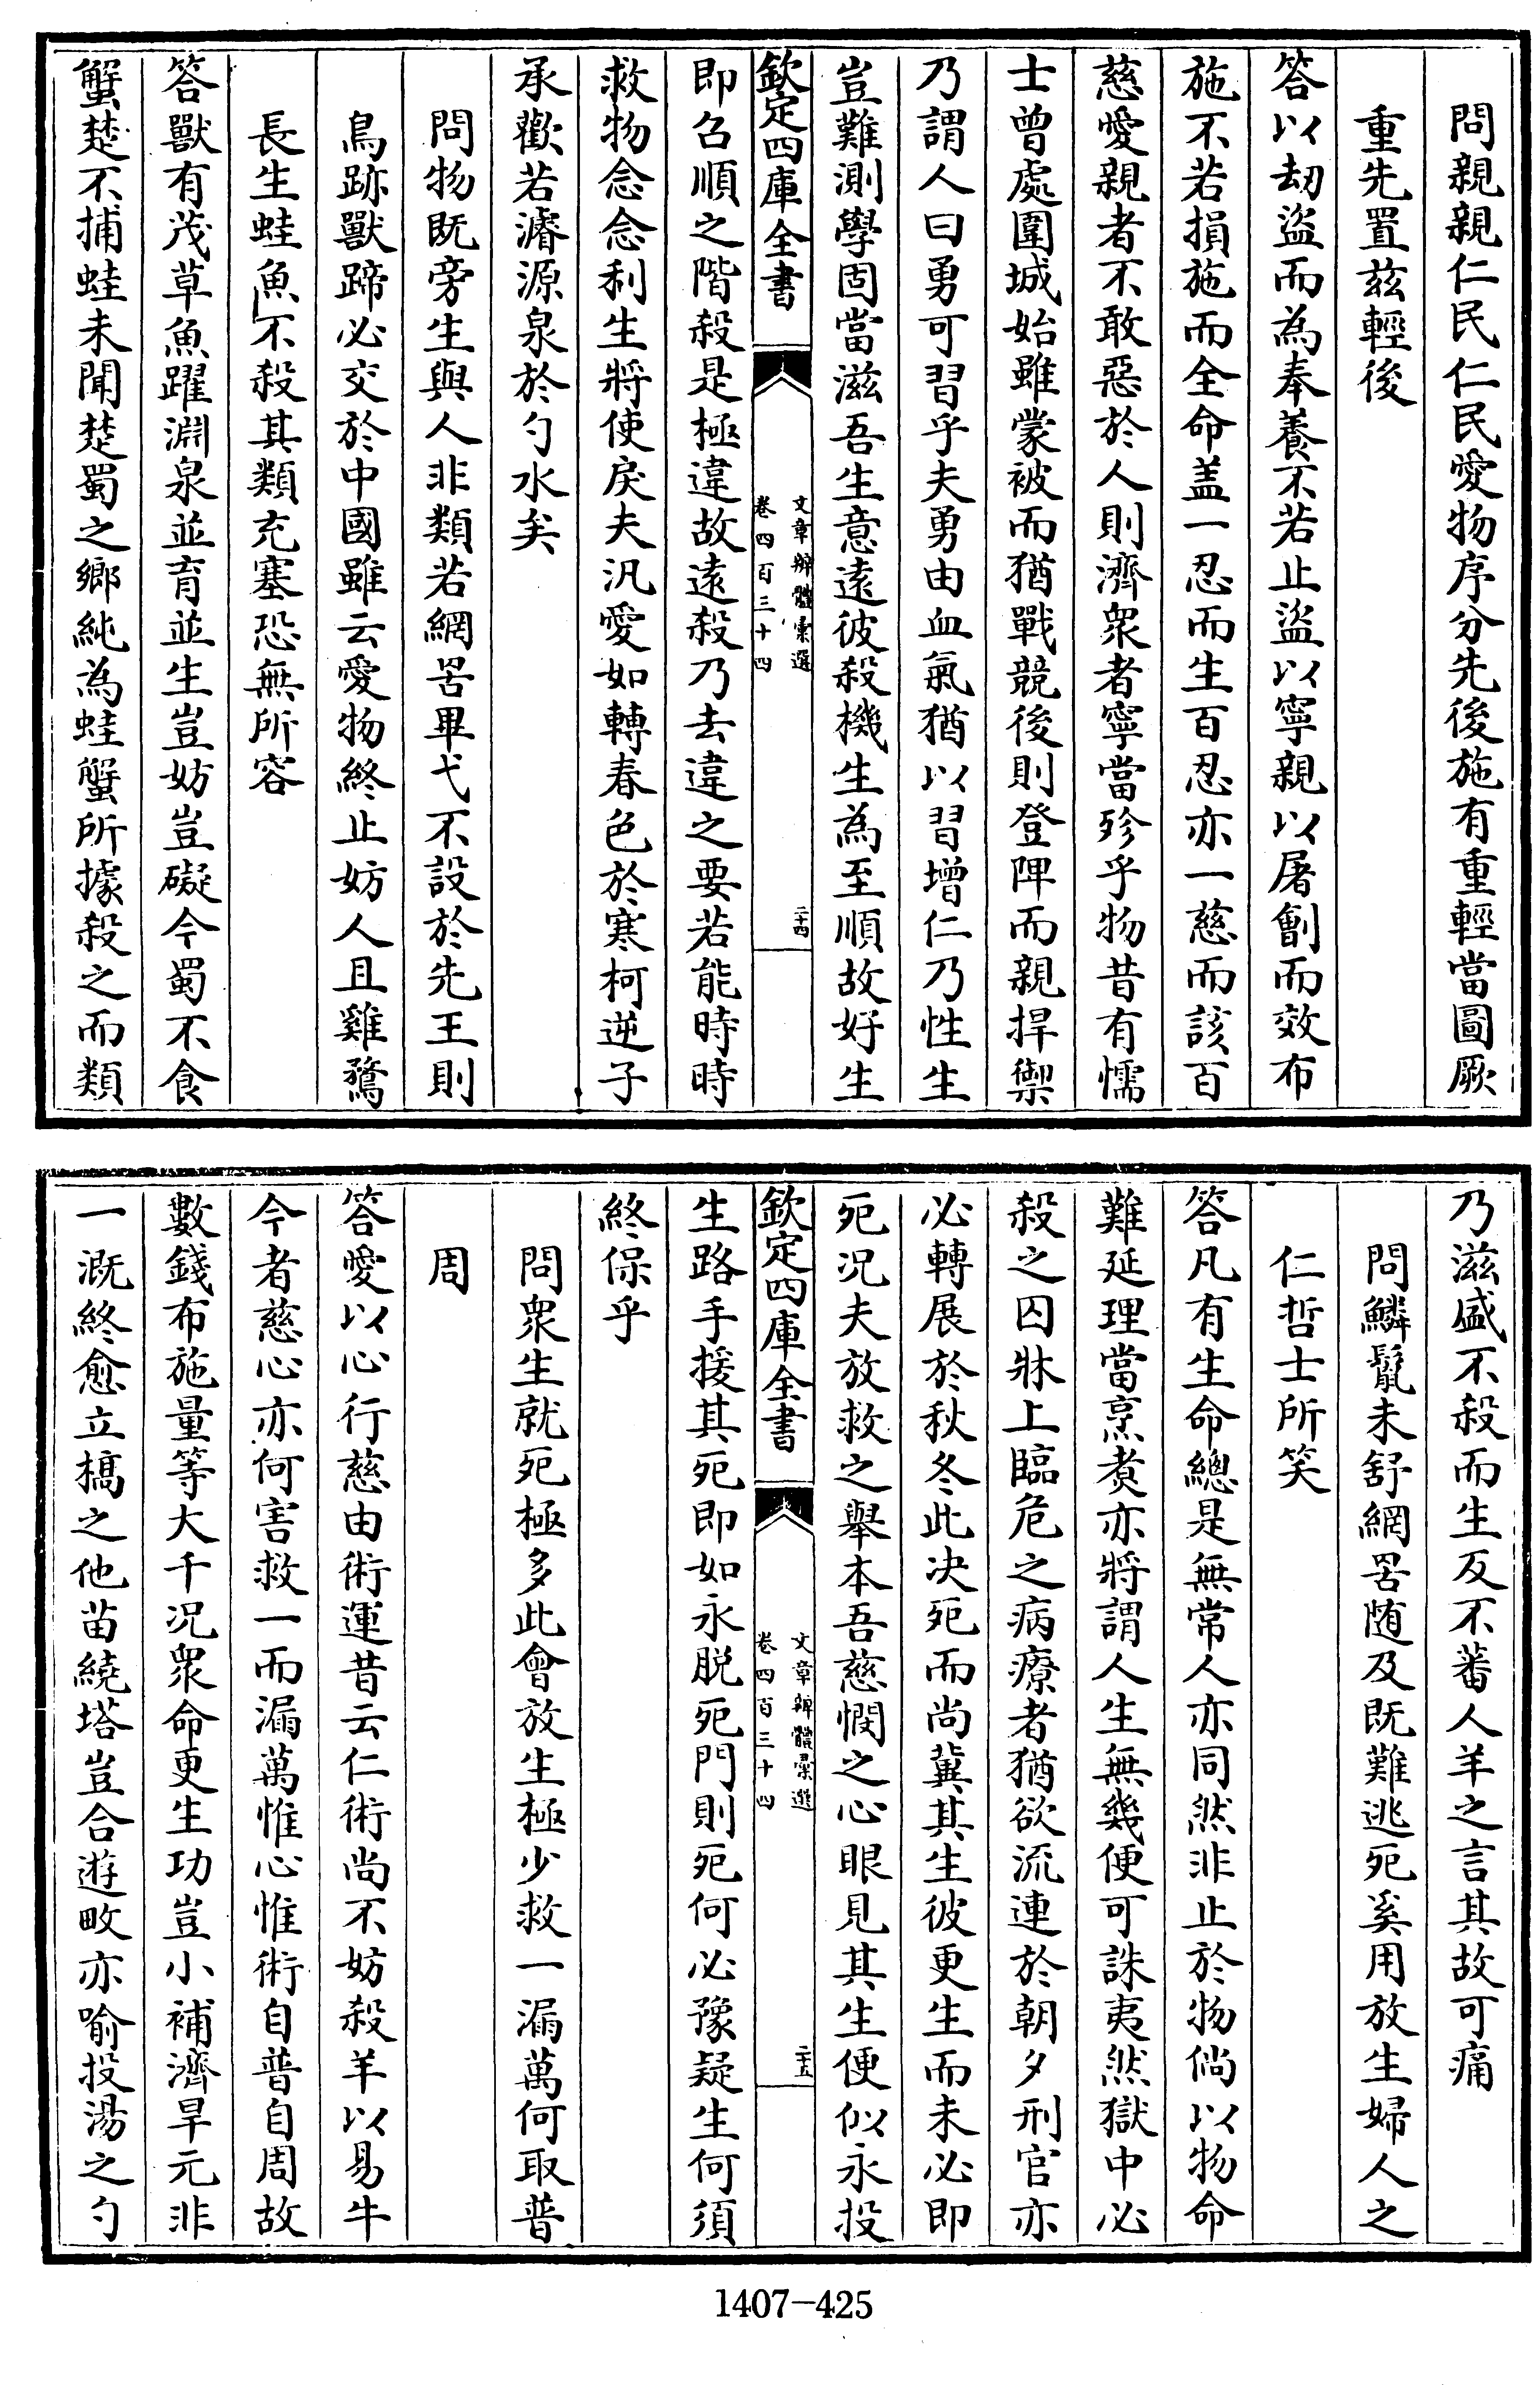 問親親仁民仁民愛物序分先後施有重輕當圖厥
重先置兹輕後
答以刼盜而為奉養不若止盜以寧親以屠劊而效布
施不若損施而全命盖一忍而生百忍亦一慈而該百
慈愛親者不敢惡於人則濟衆者寧當殄乎物昔有懦
士曾處圍城始雖蒙被而猶戰競後則登陴而親捍禦
乃謂人曰勇可習乎夫勇由血氣猶以習增仁乃性生
豈難測學固當滋吾生意遠彼殺機生為至順故好生
欽定四庫全書
文章辨體彙選
卷四百三十四
二十四
即召順之階殺是極違故遠殺乃去違之要若能時時
救物念念利生將使戾夫汎愛如轉春色於寒柯逆子
承歡若濬源泉於勺水矣
問物既旁生與人非類若網罟畢弋不設於先王則
鳥跡獸蹄必交於中國雖云愛物終止妨人且雞鶩
長生蛙魚不殺其類充塞恐無所容
答獸有茂草魚躍淵泉並育並生豈妨豈礙今蜀不食
蟹楚不捕蛙未聞楚蜀之鄉純為蛙蟹所據殺之而類
乃滋盛不殺而生反不蕃人羊之言其故可痛
問鱗鬛未舒網罟随及既難逃死奚用放生婦人之
仁哲士所笑
答凡有生命總是無常人亦同然非止於物倘以物命
難延理當烹煑亦將謂人生無幾便可誅夷然獄中必
殺之囚牀上臨危之病療者猶欲流連於朝夕刑官亦
必轉展於秋冬此决死而尚冀其生彼更生而未必即
死况夫放救之舉本吾慈憫之心眼見其生便似永投
欽定四庫全書
文章辨體彙選
卷四百三十四
二十五
生路手援其死即如永脱死門則死何必豫疑生何須
終保乎
問衆生就死極多此會放生極少救一漏萬何取普
周
答愛以心行慈由術運昔云仁術尚不妨殺羊以易牛
今者慈心亦何害救一而漏萬惟心惟術自普自周故
數錢布施量等大千况衆命更生功豈小補濟旱元非
一溉終愈立槁之他苗繞塔豈合遊畋亦喻投湯之勺
1407-425